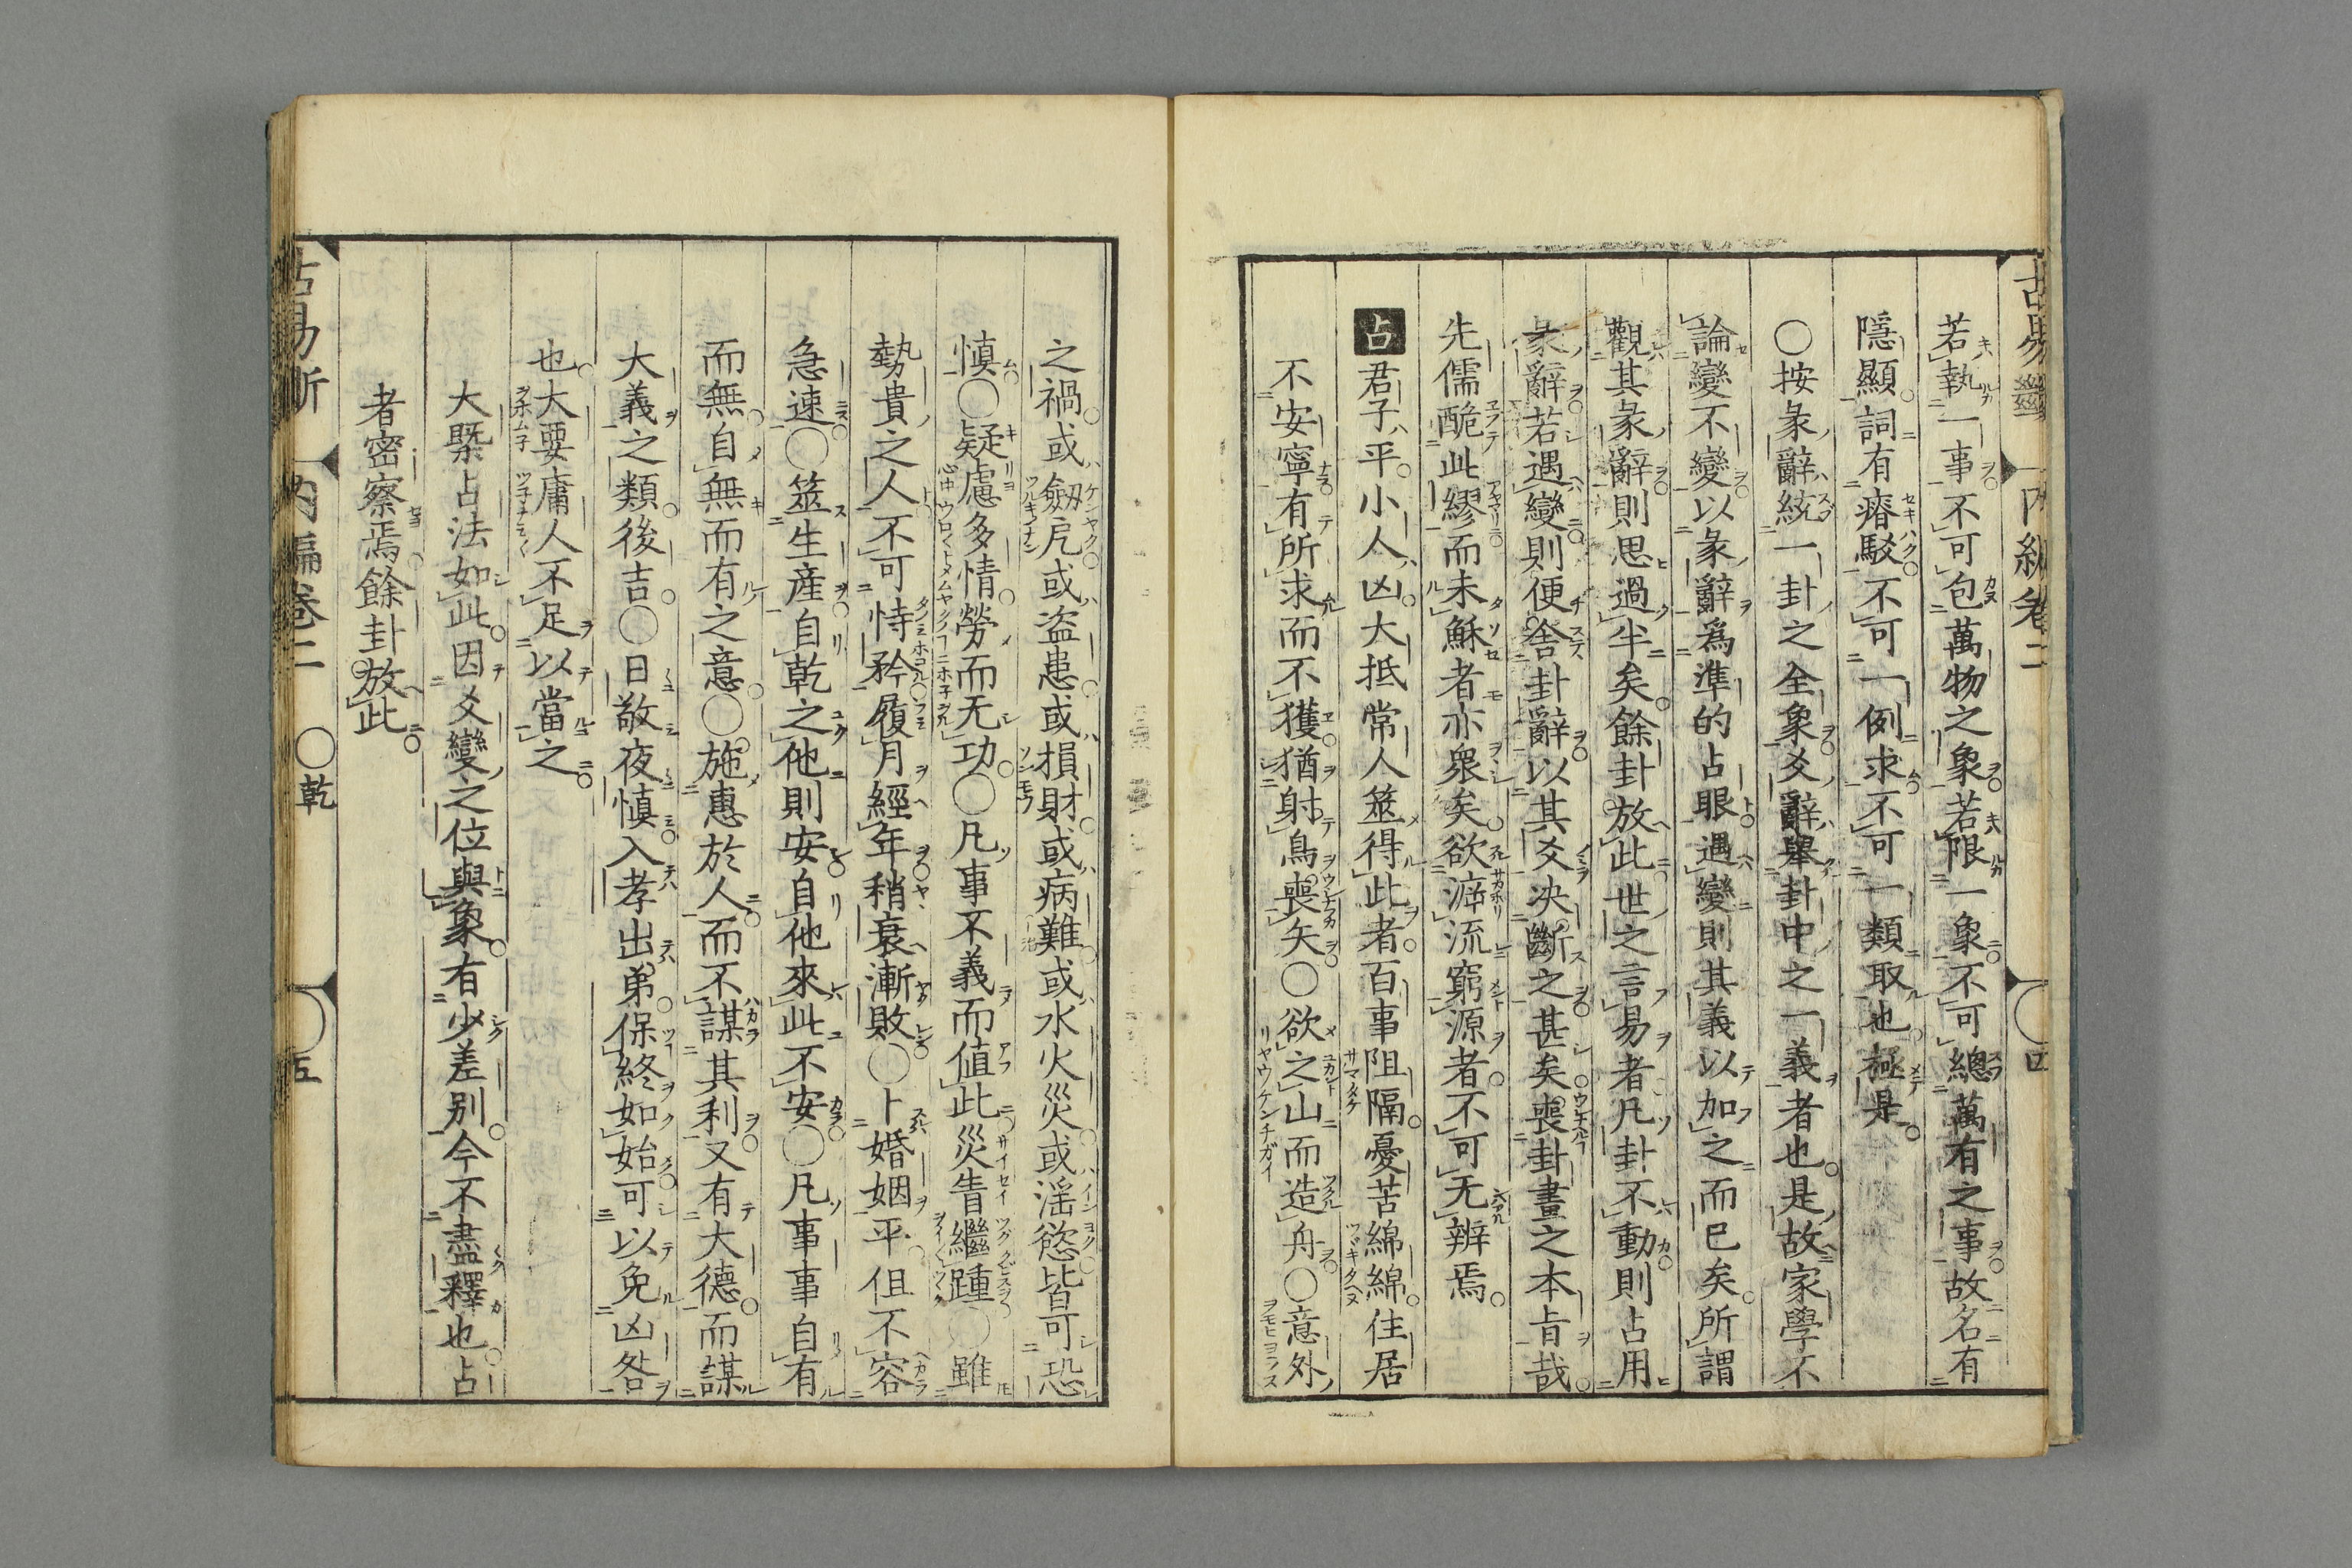 若執一事不可包萬物之象若限一象不可總萬有之事故名有
隱顯詞有瘠駁不可一例求不可一類取也極是
○按彖辭統一卦之全象爻辭舉卦中之一義者也是故家學不
論變不變以彖辭爲準的占眼遇變則其義以加之而已矣所謂
觀其彖辭則思過半矣餘卦放此世之言易者凡卦不動則占用
彖辭若遇變則便舍卦辭以其爻决斷之甚矣喪卦畫之本旨哉
先儒醜此繆而未穌者亦衆矣欲泝流窮源者不可无辨焉
占君子平小人凶大抵常人筮得此者百事阻隔憂苦綿綿住居
不安寧有所求而不獲猶射鳥喪矢○欲之山而造舟○意外
之禍或劔戹或盗患或損財或病難或水火災或滛慾皆可恐
慎○疑慮多情勞而无功○凡事不義而値此災眚繼踵○雖
勢貴之人不可恃矜履月經年稍衰漸敗○卜婚姻平但不容
急速○筮生産自乾之他則安自他來此不安○凡事事自有
而無自無而有之意○施惠於人而不謀其利又有大德而謀
大義之類後吉○日敬夜慎入孝出弟保終如始可以免凶咎
也大要庸人不足以當之
大槩占法如此因爻變之位與象有少差别今不盡釋也占
者密察焉餘卦放此
古易斷 内編卷二 ○乾 五